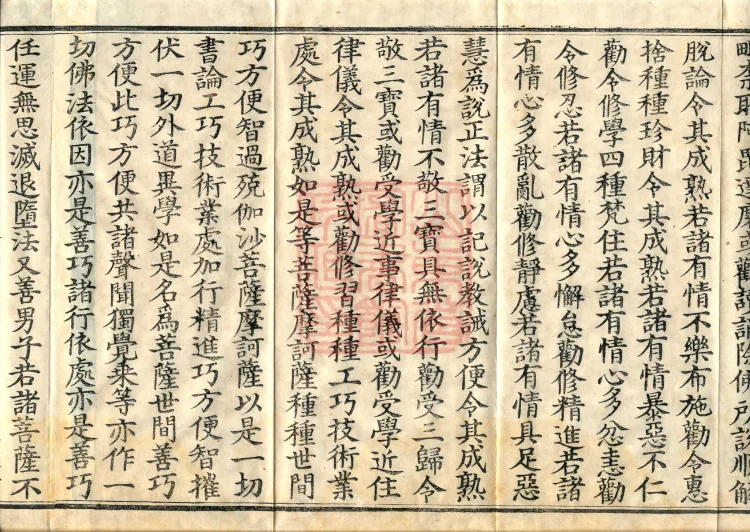 佛所說順解
脫論令其成熟若諸有情不樂布施勸令惠
捨種種珍財令其成熟若諸有情暴惡不仁
勸令修學四種梵住若諸有情心多忿恚勸
令修忍若諸有情心多懈怠勸修精進若諸
有情心多散亂勸修靜慮若諸有情具足惡
慧爲說正法謂以記說教誡方便令其成熟
若諸有情不敬三寶具無依行勸受三歸令
敬三寶或勸受學近事律儀或勸受學近住
律儀令其成熟或勸修習種種工巧技術業
處令其成熟如是等菩薩摩訶薩種種世間
巧方便智過殑伽沙菩薩摩訶薩以是一切
書論工巧技術業處加行精進巧方便智摧
伏一切外道異學如是名爲菩薩世間善巧
方便此巧方便共諸聲聞獨覺乘等亦作一
切佛法依因亦是善巧諸行依處亦是善巧
任運無思滅退墮法又善男子若諸菩薩不